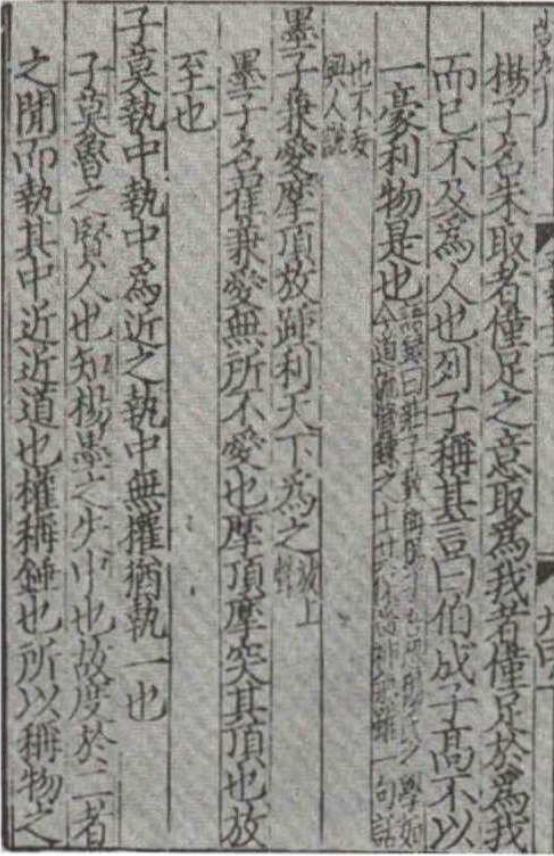 楊子名朱取者僅足之意取爲我者僅足於爲我
而已不及爲人也列子稱其言曰伯成子高不以
一豪利物是也
也不妄
與人說
墨子兼愛摩頂放踵利天下爲之放上聲
墨子名翟兼愛無所不愛也摩頂摩突其頂也放
至也
子莫執中執中爲近之執中無權猶執一也
子莫魯之賢人也知楊墨之失中也故度於二者
之閒而執其中近近道也權稱錘也所以稱物之